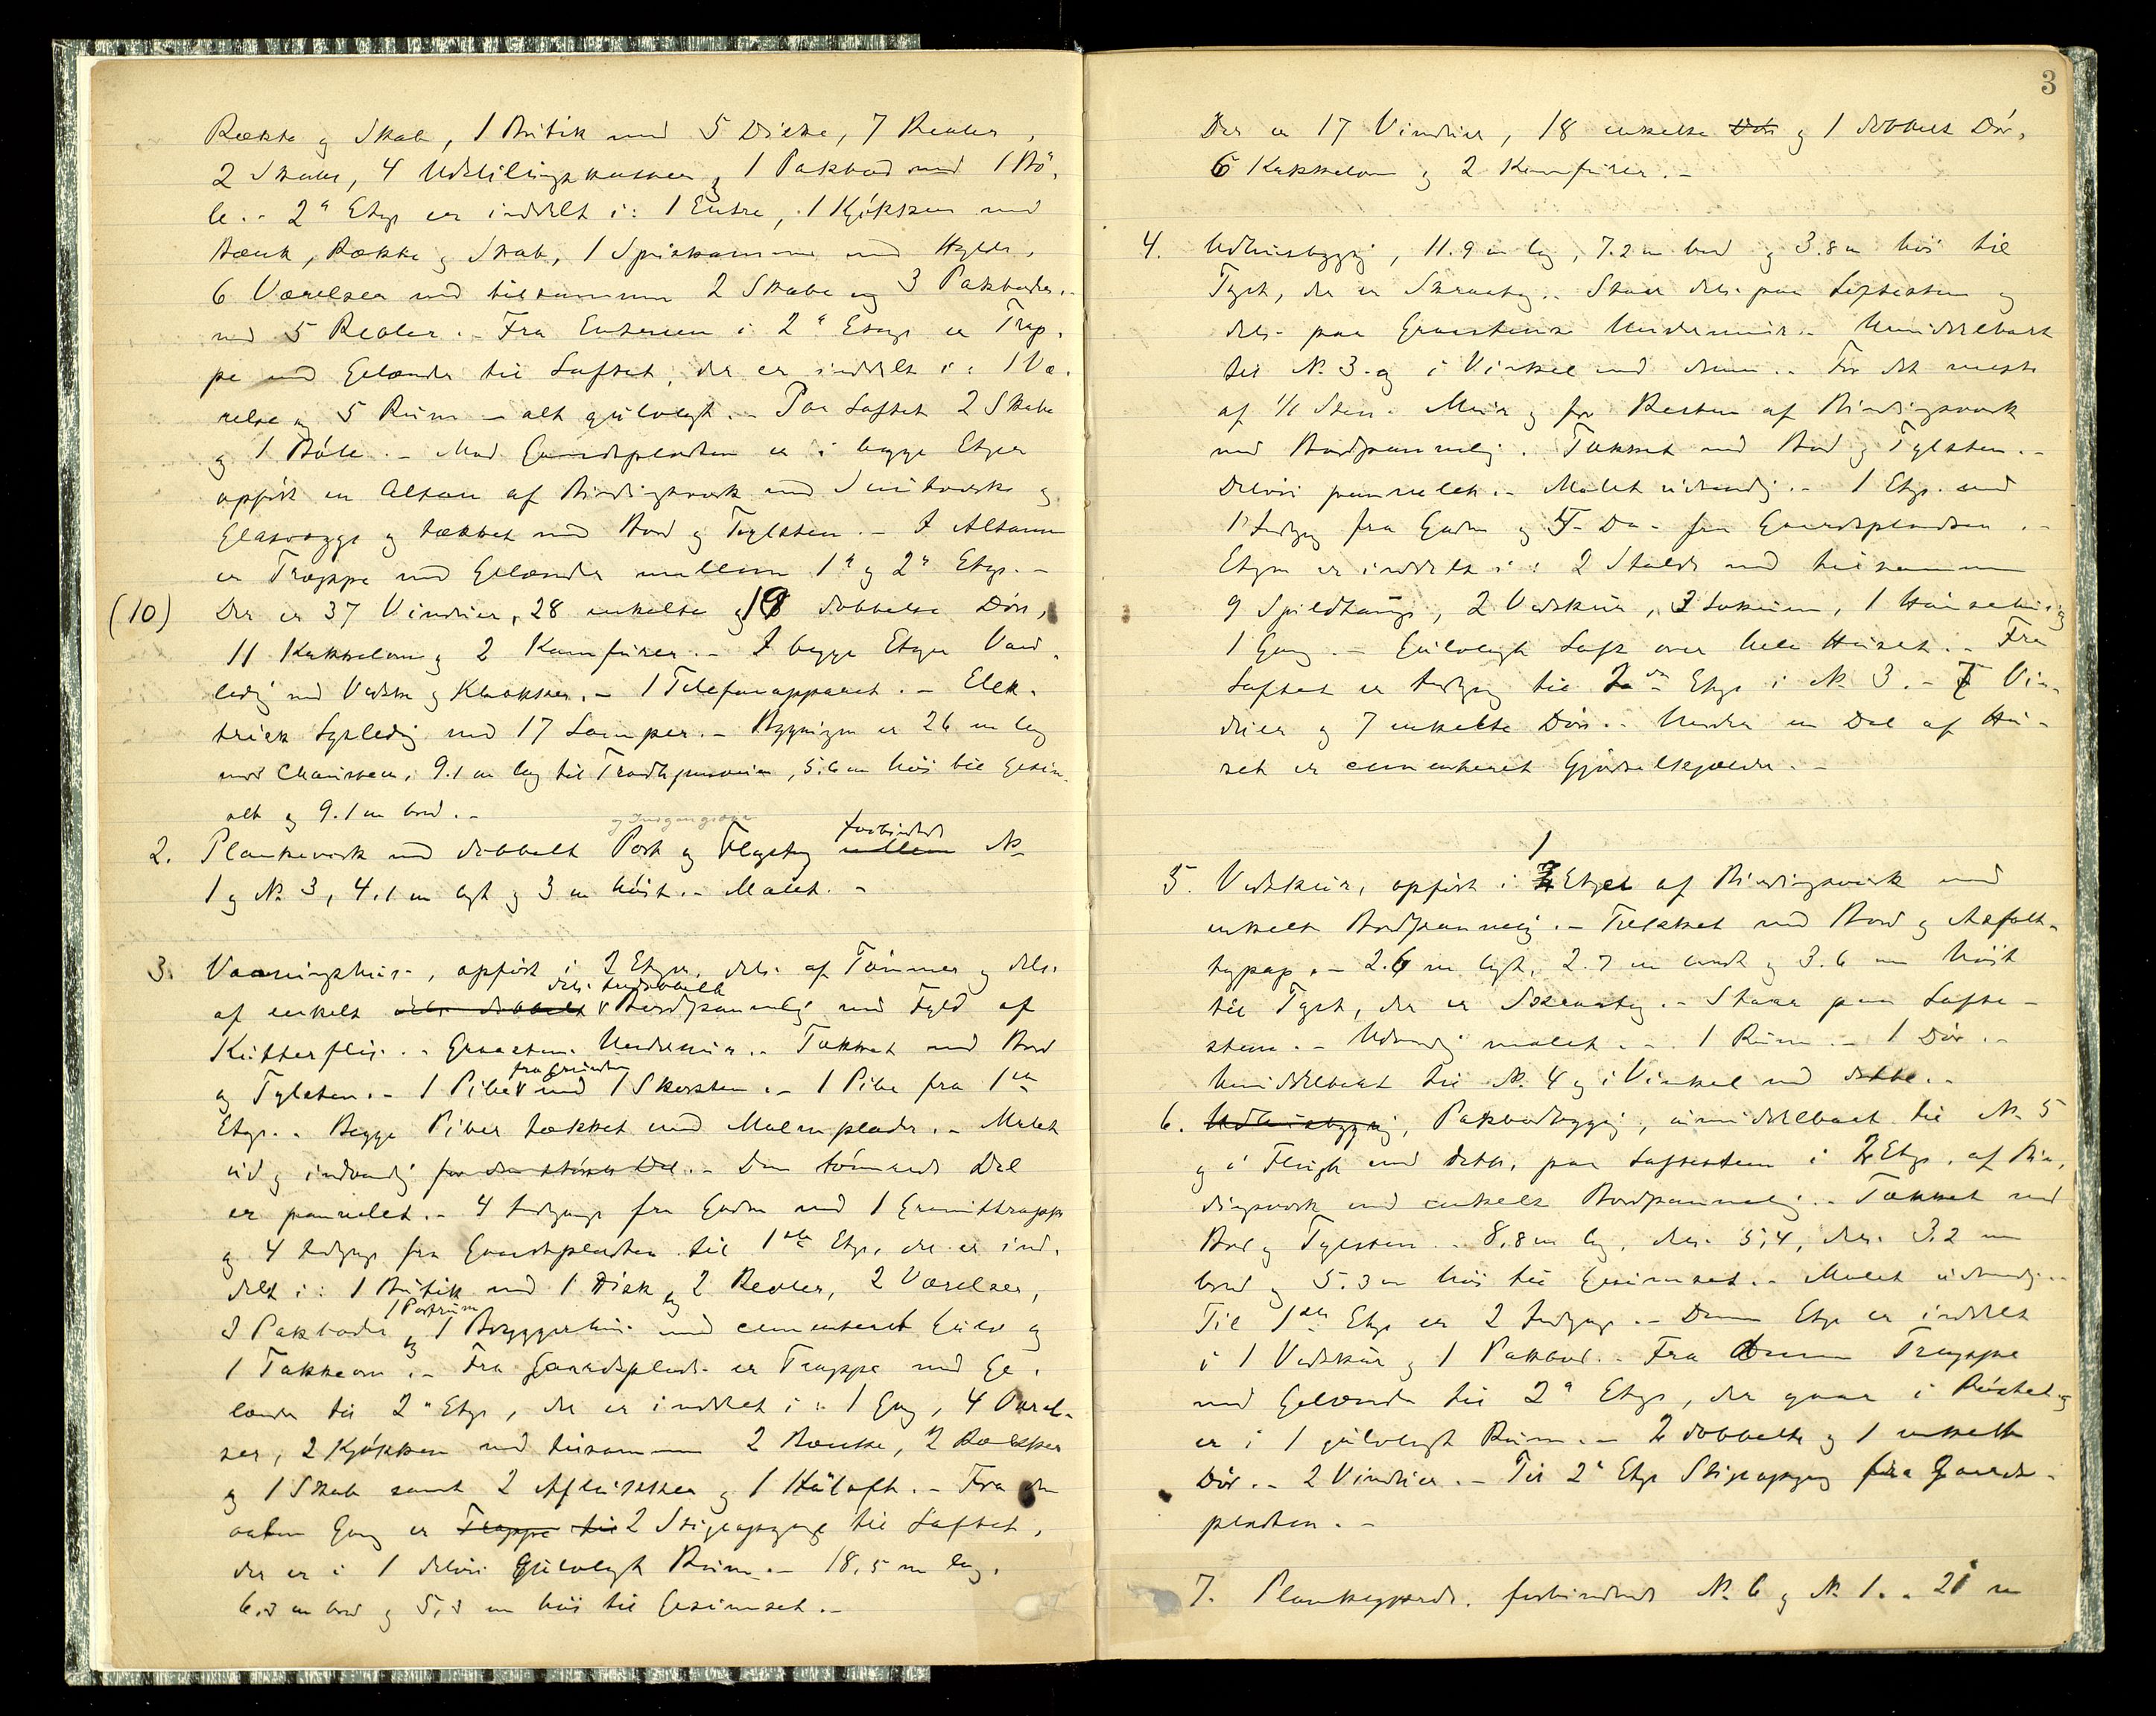 Række og Skab, 1 Butik med 5 Diske, 7 Reoler,
2 Skabe, 4 Udstillingskasser og 1 Pakbod med 1 Bö-
le.- 2a Etage er inddelt i: 1 Entre, 1 Kjökken med
Bænk, Række og Skab, 1 Spiskammer med Hylder,
6 Værelser med tilsammen 2 Skabe og 3 Pakboder
med 5 Reoler.- Fra Entreen i 2a Etage er Trap-
pe med Gelænder til Loftet, der er inddelt i: 1 Væ-
relse og 5 Rum - alt gulvlagt.- Paa Loftet 2 Skabe
og 1 Böle.- Mod Gaardspladsen er i begge Etager
opfört en Altan af Bindingsværk med Snitværks og
Glasvægge og tækket med Bord og Taglsten.- I Altanen
er Trappe med Gelænder mellem 1a og 2a Etage.-
(10) Der er 37 Vinduer, 28 enkelte og 19 dobbelte Döre,
11 Kakkelovne og 2 Komfurer.- I begge Etager Vand-
ledning med Vadske og Klosetter.- 1 Telefonapparat.- Elek-
trisk Lysledning med 17 Lamper.- Bygningen er 26 m lang
mod Chausseen, 9.1 m lang til Trondhjemsveien, 5.6 m höi til Gesim-
set og 9.1 m bred.-
og Indgangsdör
2. Plankeværk med dobbelt Port og Flagstang mellem forbindende No
1 og No 3, 4.1 m langt og 3 m höit.- Malet.-
3. Vaaningshus, opfört i 2 Etager, dels af Tömmer og dels
af enkelt dels dobbelt dels tredobbelt Bordpanneling med Fyld af
Kutterflis.- Graastens Undermur.- Tækket med Bord
og Taglsten.- 1 Pibe fra Grunden med 1 Skorsten.- 1 Pibe fra 1ste
Etage.- Begge Piber tækket med Malmplader.- Malet
ud og indvendig for den störste Del.- Den tömrede Del
er pannelet.- 4 Indgange fra Gaden med 1 Granittrappe
og 4 Indgange fra Gaardspladsen til 1ste Etage, der er ind-
delt i: 1 Butik med 1 Disk og 2 Reoler, 2 Værelser,
3 Pakboder, 1 Portrum og 1 Bryggerhus med cementeret Gulv og
1 Takkeovn.- Fra Gaardsplads er Trappe med Ge-
lænder til 2a Etage, der er inddelt i: 1 Gang, 4 Værel-
ser, 2 Kjökken med tilsammen 2 Bænke, 2 Rækker
og 1 Skab samt 2 Aflukker og 1 Höloft.- Fra den
aabne Gang er Trappe til 2 Stigeopgange til Loftet,
der er i 1 delvis gulvlagt Rum.- 18.5 m lang,
6.3 m bred og 5.3 m höi til Gesimset.-
3
Der er 17 Vinduer, 18 enkelte Döre og 1 dobbelt Dör,
6 Kakkelovne og 2 Komfurer.-
4. Udhusbygning, 11.9 m lang, 7.2 m bred og 3.8 m höi til
Taget, der er Skraatag.- Staar dels paa Loftesten og
dels paa Graastens Undermur.- Umiddelbart
til No 3 og i Vinkel med denne.- For det meste
af 1/1 Stens Mur og for Resten af Bindingsværk
med Bordpanneling.- Tækket med Bord og Taglsten.-
Delvis pannelet.- Malet udvendig.- 1 Etage med
1 Indgang fra Gaden og 5 Do fra Gaardspladsen.-
Etagen er inddelt i: 2 Stalde med tilsammen
9 Spildtauge, 2 Vedskur, 3 Lokum, 1 Hönsehus og
1 Gang.- Gulvlagt Loft over hele Huset.- Fra
Loftet er Indgang til 2den Etage i No 3.- 7 Vin-
duer og 7 enkelte Döre.- Under en Del af Hu-
set er cementeret Gjödselkjælder.-
5. Vedskur, opfört i 1 Etage af Bindingsværk med
enkelt Bordpanneling.- Tækket med Bord og Asfalt-
tagpap.- 2.6 m langt, 2.7 m bredt og 3.6 m höit
til Taget, der er Skraatag.- Staar paa Lofte-
stene.- Udvendig malet.- 1 Rum.- 1 Dör.-
Umiddelbart til No 4 og i Vinkel med dette.-
6. Udhusbygning, Pakbodbygning, umiddelbart til No 5
og i Flugt med dette, paa Loftesten i 2 Etager, af Bin-
dingsværk med enkelt Bordpanneling.- Tækket med
Bord og Taglsten.- 8.8 m lang, dels 5.4, dels 3.2 m
bred og 5.3 m höi til Gesimset.- Malet udvendig.-
Til 1ste Etage er 2 Indgange.- Denne Etage er inddelt
i 1 Vedskur og 1 Pakbod.- Fra denne Trappe
med Gelænder til 2a Etage, der gaar i Röstet og
er i 1 gulvlagt Rum.- 2 dobbelte og 1 enkelt
Dör.- 2 Vinduer.- Til 2a Etage Stigeopgang fra Gaards-
pladsen.-
7. Plankegjærde, forbindende No 6 og No 1.- 21 m